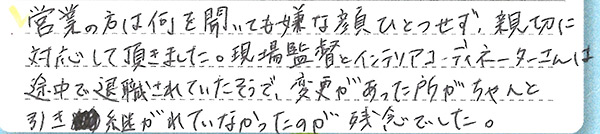 営業の方は何を聞いても嫌な顔ひとつせず、親切に
対応して頂きました。現場監督とインテリアコーディネーターさんは
途中で退職されていたそうで、変更があった所がちゃんと
引き継がれていなかったのが残念でした。